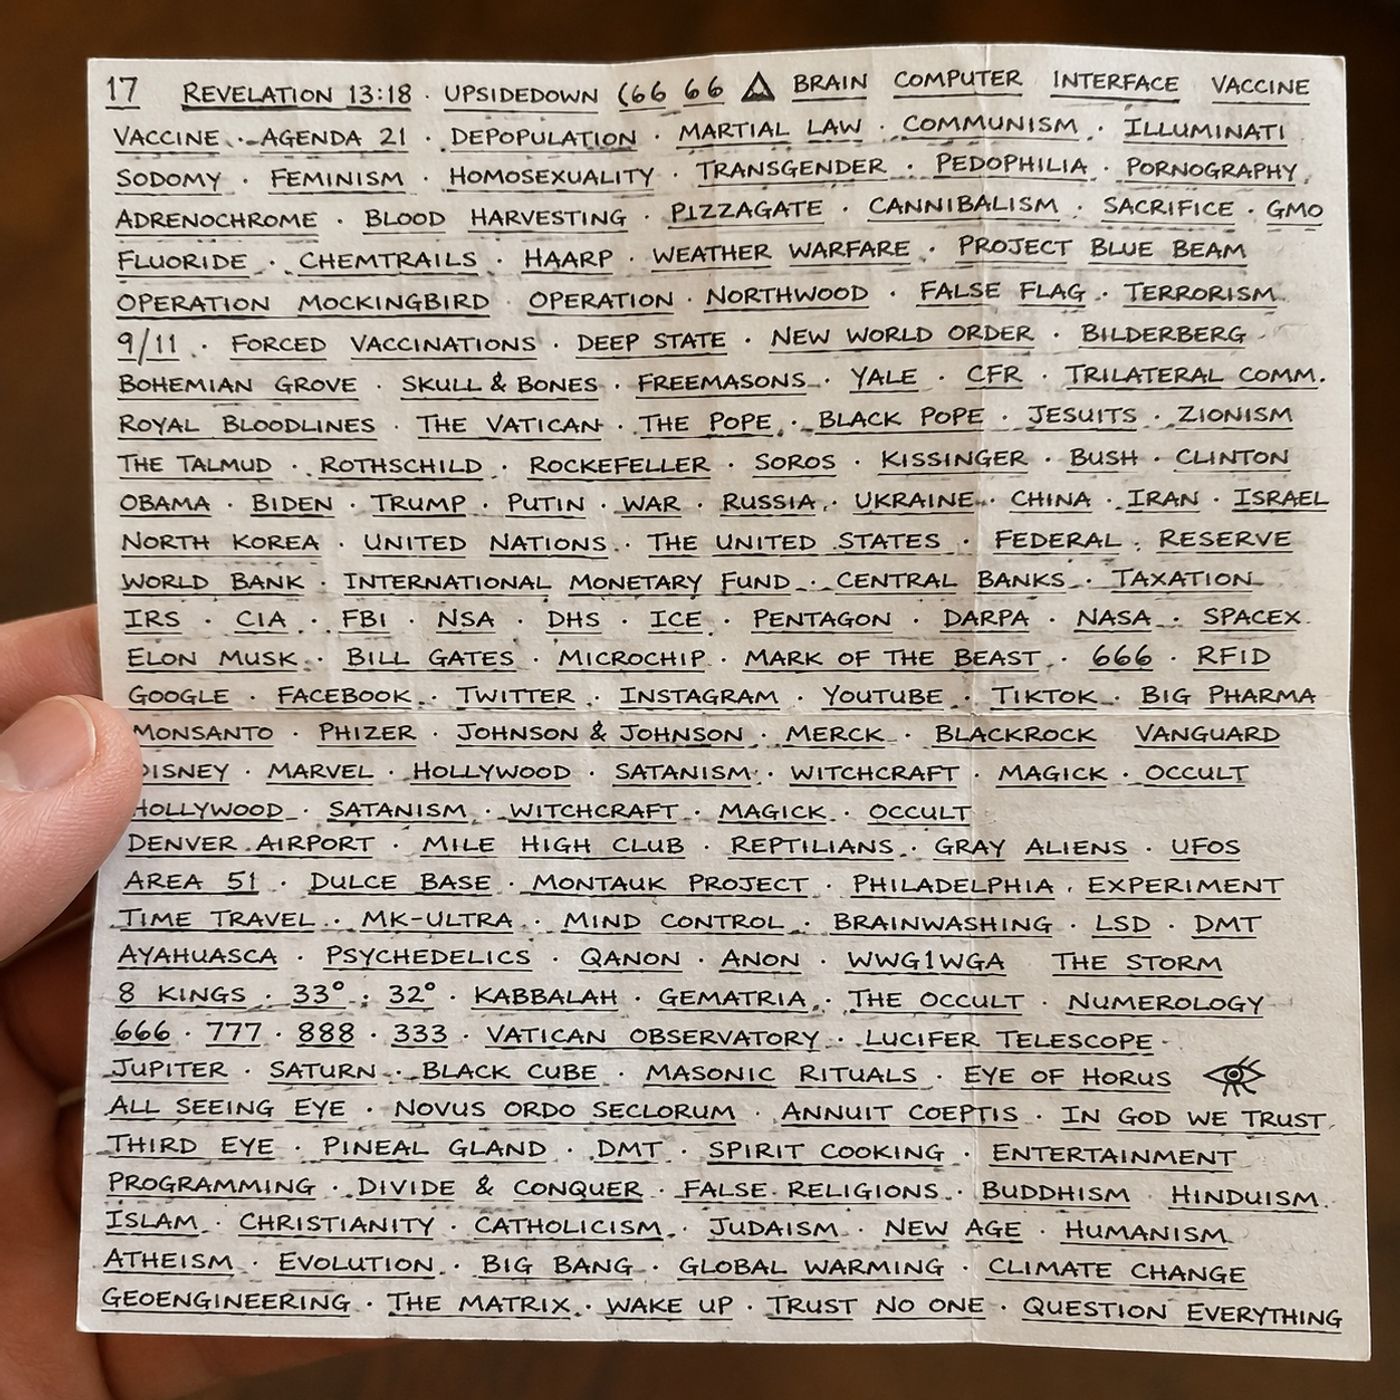 17 REVELATION 13:18 · UPSIDEDOWN (66 66 BRAIN COMPUTER INTERFACE VACCINE
VACCINE · AGENDA 21 · DEPOPULATION · MARTIAL LAW · COMMUNISM · ILLUMINATI
SODOMY · FEMINISM · HOMOSEXUALITY · TRANSGENDER · PEDOPHILIA · PORNOGRAPHY
ADRENOCHROME · BLOOD HARVESTING · PIZZAGATE · CANNIBALISM · SACRIFICE · GMO
FLUORIDE · CHEMTRAILS · HAARP · WEATHER WARFARE · PROJECT BLUE BEAM
OPERATION MOCKINGBIRD OPERATION · NORTHWOOD · FALSE FLAG · TERRORISM
9/11 · FORCED VACCINATIONS · DEEP STATE · NEW WORLD ORDER · BILDERBERG
BOHEMIAN GROVE · SKULL & BONES · FREEMASONS · YALE · CFR · TRILATERAL COMM.
ROYAL BLOODLINES · THE VATICAN · THE POPE · BLACK POPE · JESUITS · ZIONISM
THE TALMUD · ROTHSCHILD · ROCKEFELLER · SOROS · KISSINGER · BUSH · CLINTON
OBAMA · BIDEN · TRUMP · PUTIN · WAR · RUSSIA · UKRAINE · CHINA · IRAN · ISRAEL
NORTH KOREA · UNITED NATIONS · THE UNITED STATES · FEDERAL · RESERVE
WORLD BANK · INTERNATIONAL MONETARY FUND · CENTRAL BANKS · TAXATION
IRS · CIA · FBI · NSA · DHS · ICE · PENTAGON · DARPA · NASA · SPACEX
ELON MUSK · BILL GATES · MICROCHIP · MARK OF THE BEAST · 666 · RFID
GOOGLE · FACEBOOK · TWITTER · INSTAGRAM · YOUTUBE · TIKTOK · BIG PHARMA
MONSANTO · PHIZER · JOHNSON & JOHNSON · MERCK · BLACKROCK VANGUARD
DISNEY · MARVEL · HOLLYWOOD · SATANISM · WITCHCRAFT · MAGICK · OCCULT
HOLLYWOOD · SATANISM · WITCHCRAFT · MAGICK · OCCULT
DENVER AIRPORT · MILE HIGH CLUB · REPTILIANS · GRAY ALIENS · UFOS
AREA 51 · DULCE BASE · MONTAUK PROJECT · PHILADELPHIA · EXPERIMENT
TIME TRAVEL · MK-ULTRA · MIND CONTROL · BRAINWASHING · LSD · DMT
AYAHUASCA · PSYCHEDELICS · QANON · ANON · WWG1WGA THE STORM
8 KINGS · 33° : 32° · KABBALAH · GEMATRIA · THE OCCULT · NUMEROLOGY
666 · 777 · 888 · 333 · VATICAN OBSERVATORY · LUCIFER TELESCOPE ·
JUPITER · SATURN · BLACK CUBE · MASONIC RITUALS · EYE OF HORUS
ALL SEEING EYE · NOVUS ORDO SECLORUM · ANNUIT COEPTIS · IN GOD WE TRUST
THIRD EYE · PINEAL GLAND · DMT · SPIRIT COOKING · ENTERTAINMENT
PROGRAMMING · DIVIDE & CONQUER · FALSE RELIGIONS · BUDDHISM · HINDUISM
ISLAM · CHRISTIANITY · CATHOLICISM · JUDAISM · NEW AGE · HUMANISM
ATHEISM · EVOLUTION · BIG BANG · GLOBAL WARMING · CLIMATE CHANGE
GEOENGINEERING · THE MATRIX · WAKE UP · TRUST NO ONE · QUESTION EVERYTHING